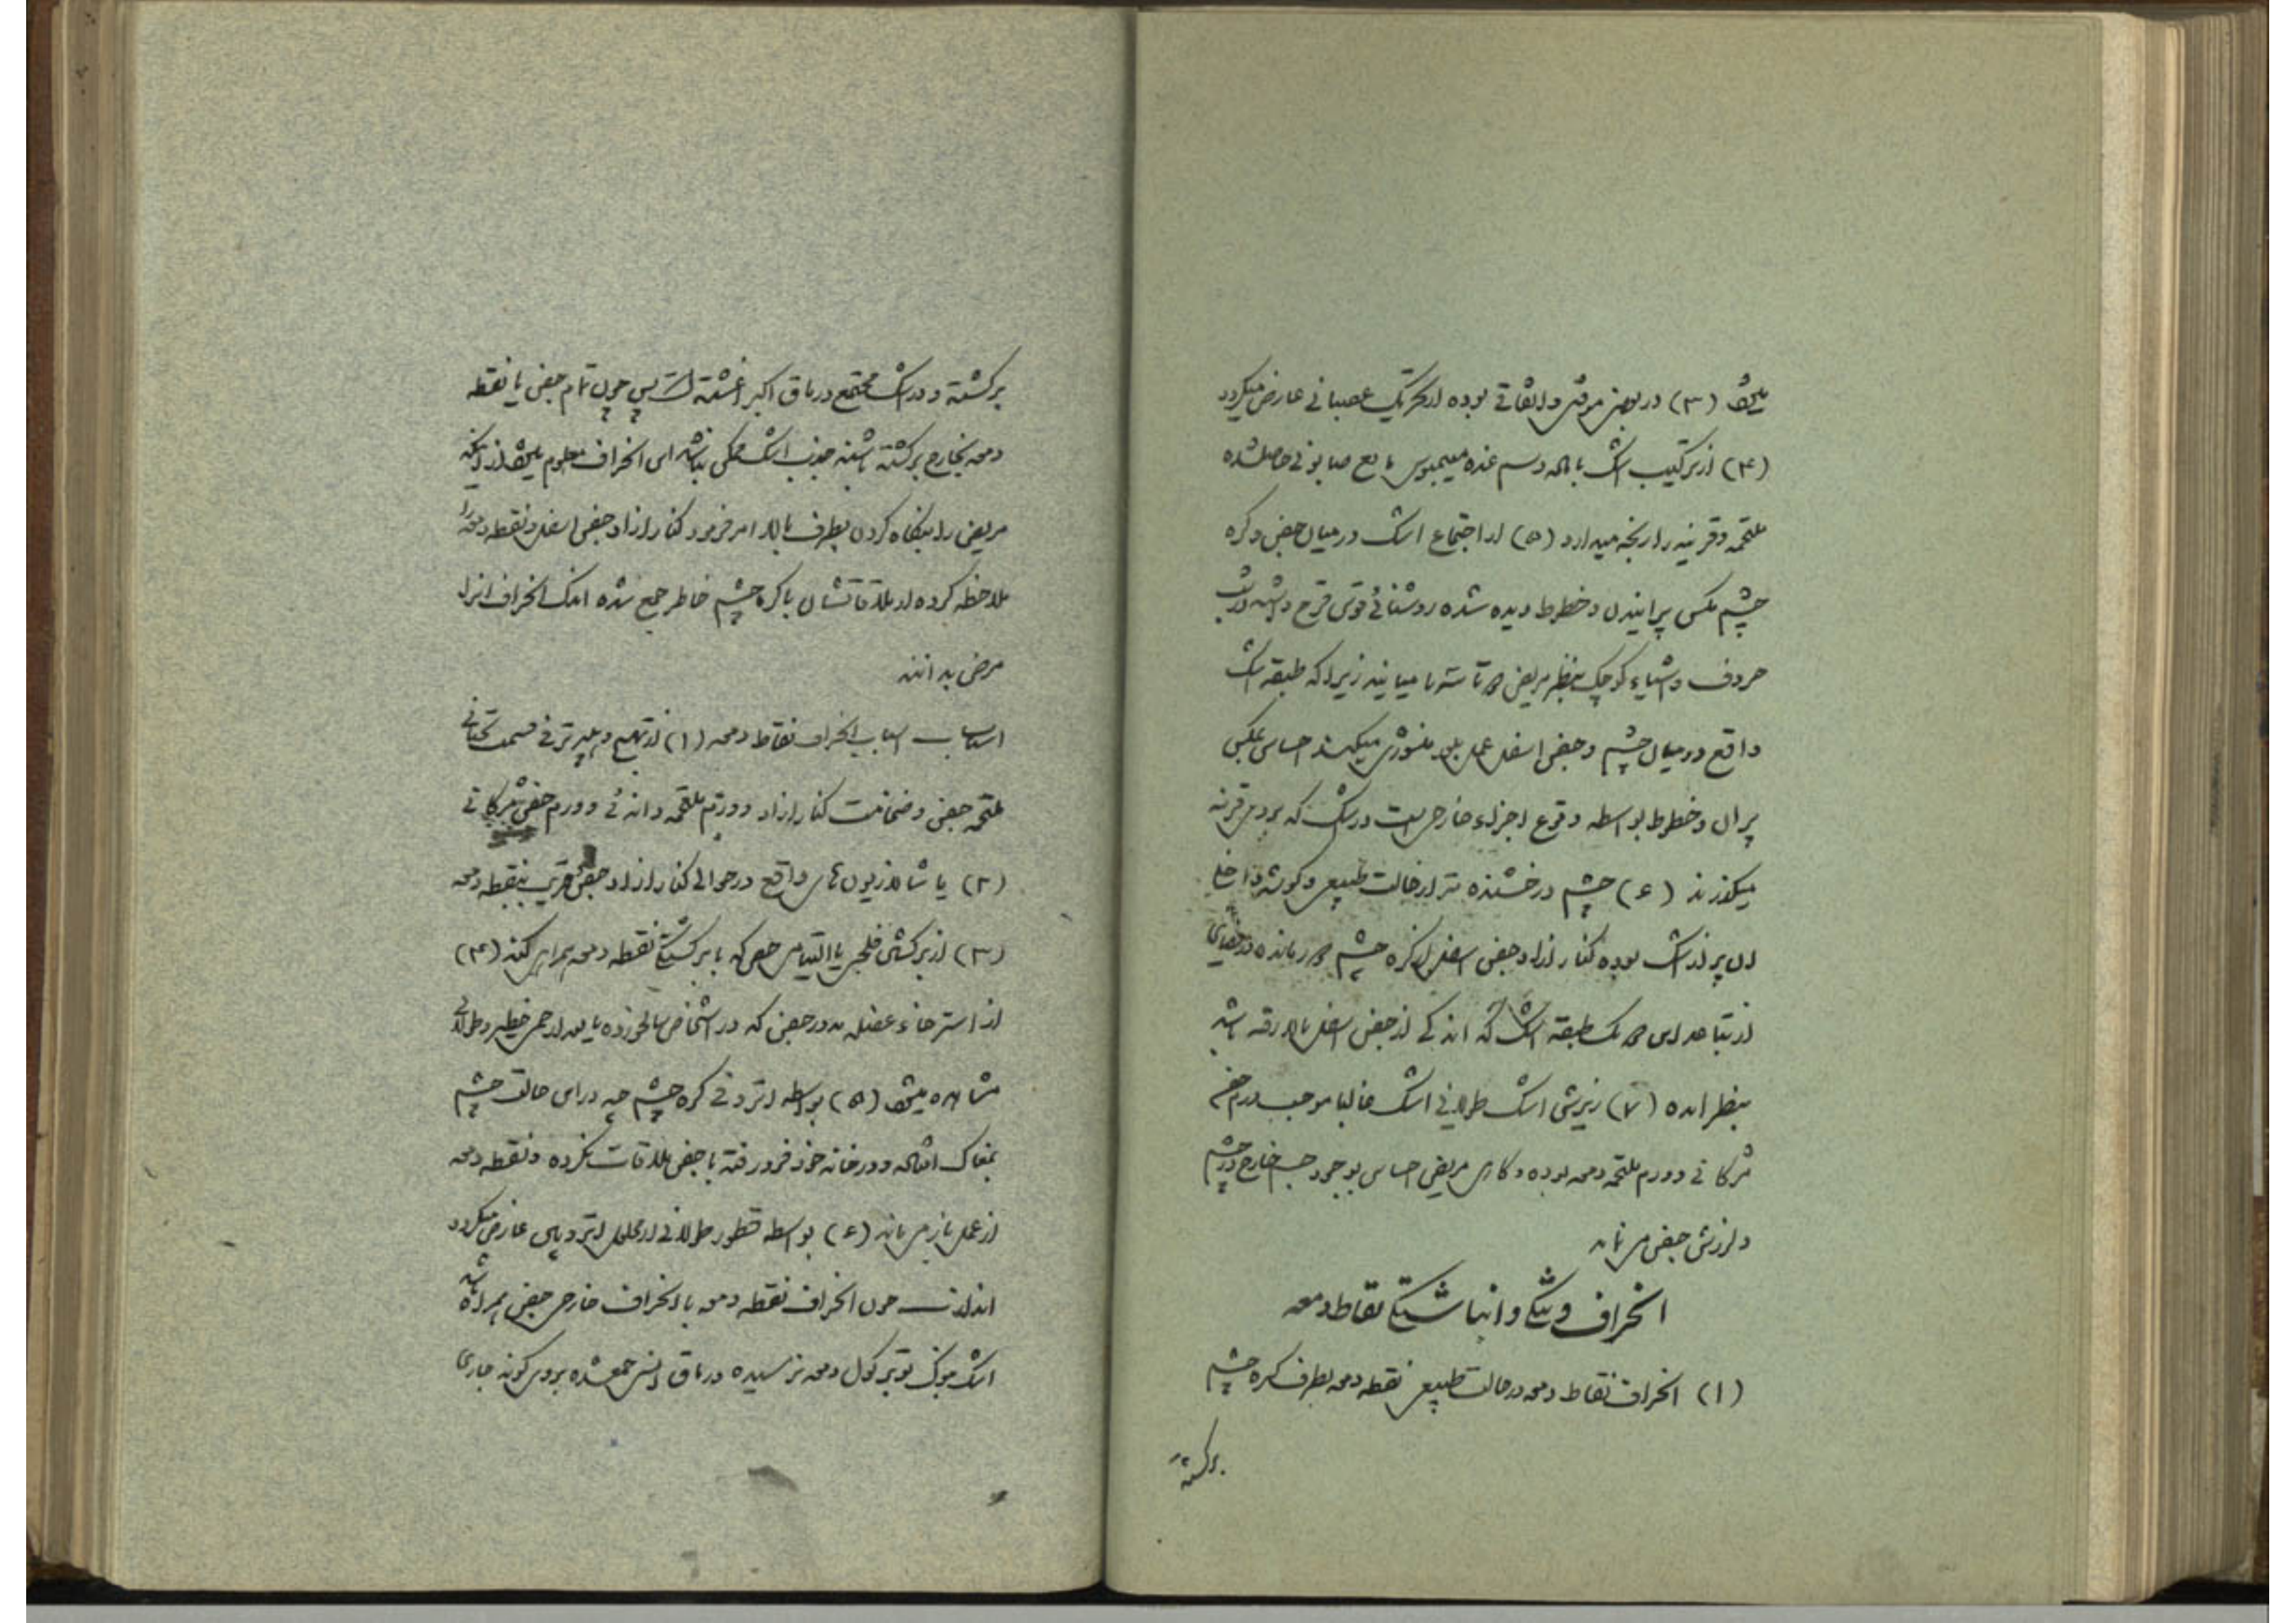 میشود (۳) در بعضی موقتی و اتفاقی بوده از تحریک عصبانی عارض میگردد
(۴) از ترکیب اشک با ماده دسم غده میبمیوس مایع صابونی حاصلشده
ملتحمه و قرنیه را رنجه میدارد (۵) از اجتماع اشک در میان جفن و کره
چشم مگس پرانیدن و خطوط دیده شده روشنائی قوس قزح داشته
حروف و اشیاء کوچک بنظر مریض مرتاسته با میانید زیرا که طبقه اشک
واقع در میان چشم و جفن اسفل عمل بلور منشوری میکند احساس مگس
پران و خطوط بواسطه وقوع اجزاء خارجی است در اشک که بر روی قرنیه
میگذرند (۶) چشم درخشنده تر از حالت طبیعی و گوشه داخلی
ان پر از اشک بوده کنار ازاد جفن اسفل از کره چشم دور مانده در فضای
از تباعد این دو یک طبقه اشک که اندکی از جفن اسفل بالا رفته باشد
بنظر امده (۷) ریزش اشک طولانی اشک غالبا موجب ورم جفن
مژگانی و ورم ملتحمه دمعه بوده و گاهی مریض احساس بوجود جسم خارج در چشم
و لرزش جفن می نماید
انحراف و تنگی و انباشتگی نقاط دمعه
(۱) انحراف نقاط دمعه در حالت طبیعی نقطه دمعه بطرف کره چشم
برگشته
برگشته و در اشک مجتمع در ماق اکبر اغشته است پس چون تمام جفن یا نقطه
دمعه بخارج برگشته باشند جذب اشک ممکن نباشد این انحراف معلوم میشود از اینکه
مریض را بنگاه کردن بطرف بالا امر فرمود کنار ازاد جفن اسفل و نقطه دمعه را
ملاحظه کرده از ملاقاتشان با کره چشم خاطر جمع شده اندک انحراف انرا
مرض بدانند
اسباب اسباب انحراف نقاط دمعه (۱) از تهیج و هیپرترفی قسمت تحتانی
ملتحمه جفن و ضخامت کنار ازاد و ورم ملتحمه دانه ئی و ورم جفن مژگانی
(۲) یا شالازیون های واقع در حوالی کنار ازاد جفن قریب بنقطه دمعه
(۳) از برگشتگی فلجی یا التیامی جفن که با برگشتگی نقطه دمعه همراهی کند (۴)
از استرخاء عضله مدور جفن که در اشخاص سالخورده یا بعد از حمر خطیر و طولانی
مشاهده میشود (۵) بواسطه اتروفی کره چشم چه در این حالت چشم
بمغاک افتاده و در خانه خود فرو رفته با جفن ملاقات نکرده و نقطه دمعه
از عمل باز می ماند (۶) بواسطه قطور طولانی از محلول اتروپین عارض میگردد
انذارات چون انحراف نقطه دمعه با انحراف خارجی جفن همراه باشد
اشک بنوک توبرکول دمعه نرسیده در ماق انسی جمعشده بروی گونه جاری